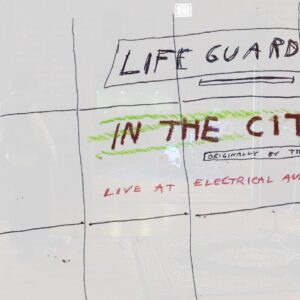 LIFE GUARD
IN THE CIT
ORIGINALLY BY TH
LIVE AT ELECTRICAL AU